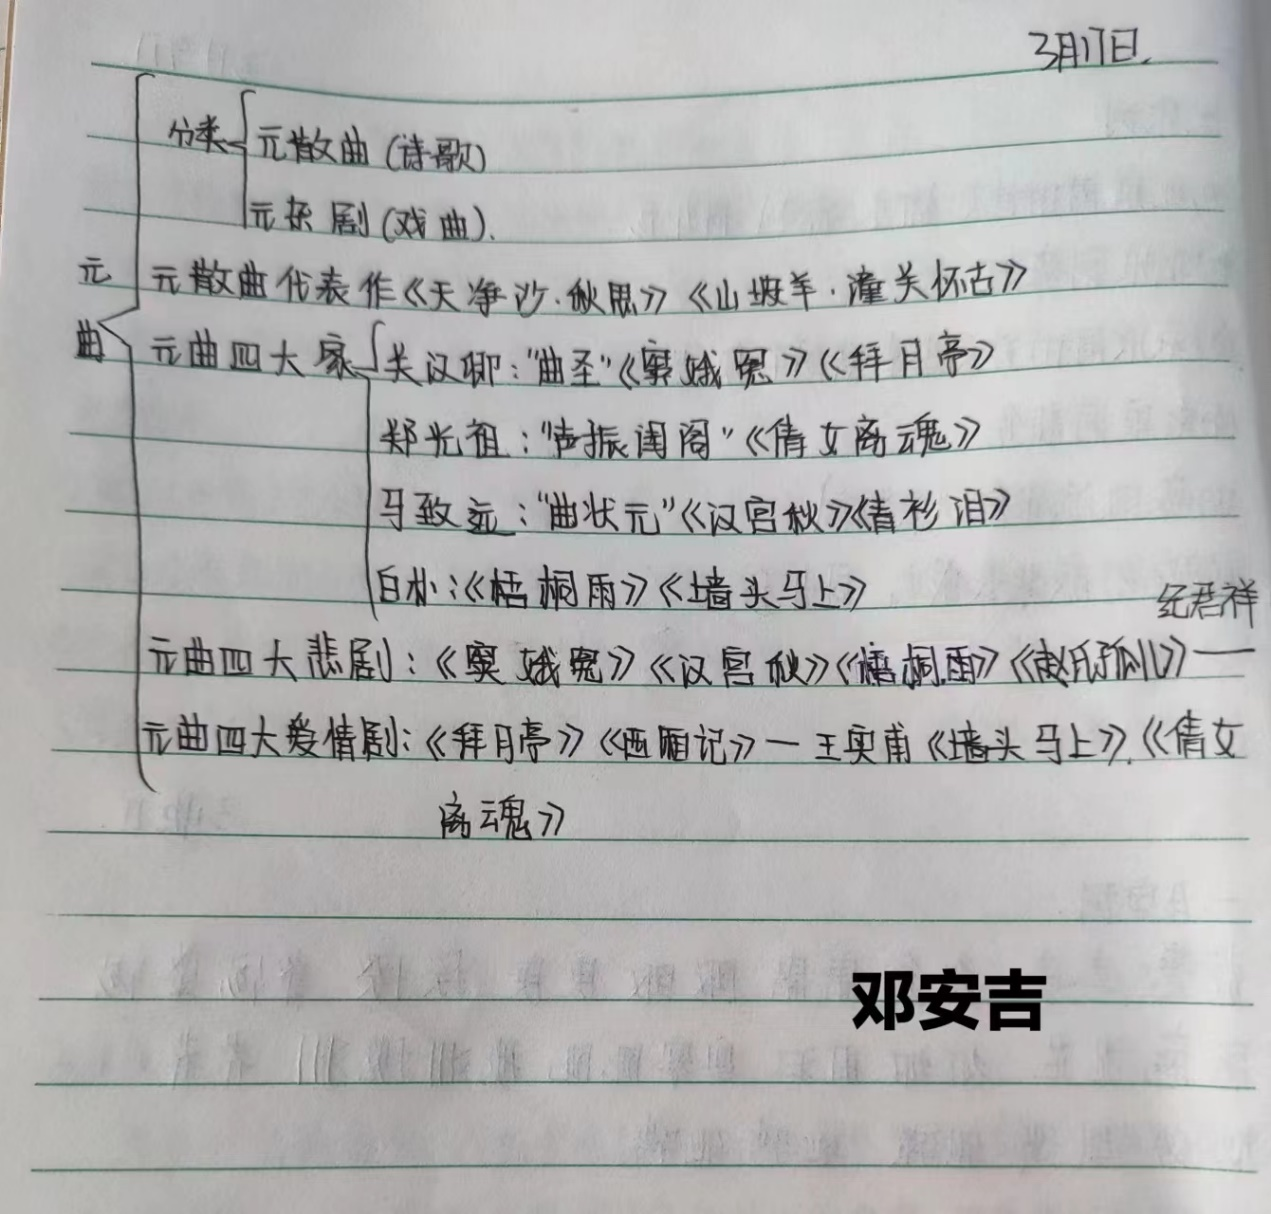 3月17日.
分类 元散曲(诗歌)
元杂剧(戏曲).
元曲
元散曲代表作《天净沙·秋思》《山坡羊·潼关怀古》
元曲四大家 关汉卿:"曲圣"《窦娥冤》《拜月亭》
郑光祖:"声振闺阁"《倩女离魂》
马致远:"曲状元"《汉宫秋》《青衫泪》
白朴:《梧桐雨》《墙头马上》
元曲四大悲剧:《窦娥冤》《汉宫秋》《梧桐雨》《赵氏孤儿》—纪君祥
元曲四大爱情剧:《拜月亭》《西厢记》—王实甫《墙头马上》.《倩女
离魂》
邓安吉